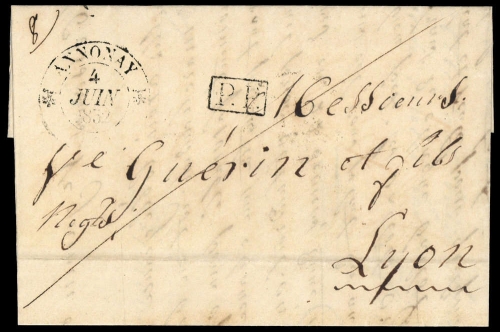 ANNONAY
4
JUIN
P.P. Messieurs
Ve Guérin et fils
Negts
Lyon